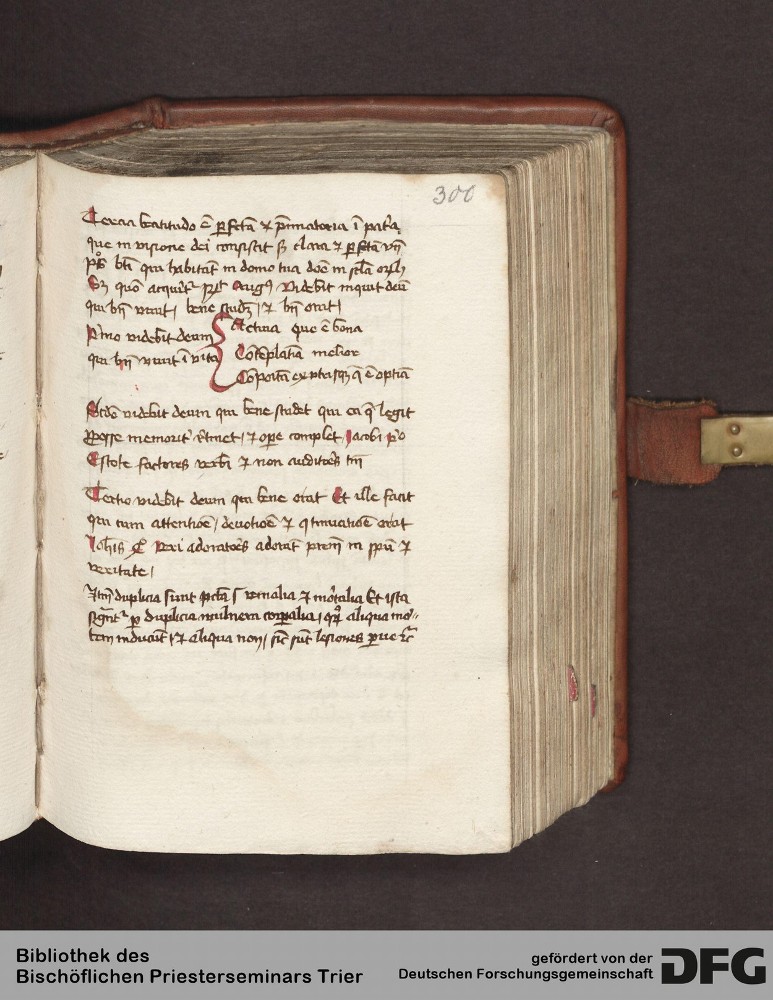 300
Tercia beatitudo ē ꝑfctā ⁊ p̄miatoria ī pat̄a
que in visione dei consistit ſꝫ clara ⁊ ꝑfctā vn̄
ps̄ bt̄i qui habitāt in domo tua dn̄e in
quō acquīt̄ Augꝰ videbit inquit deū
qui bn̄ viuit / bene studꝫ / ⁊ bn̄ orat /
Pͥmo videbit deum
qui bn̄ viuit ī vita
Actiua que ē bona
Cōtēplatīa melior
Cōpoīta ex vtrisqꝫ q̄ ē optīa
Scd̄o videbit deum qui bene studet qui ea q̄ legit
posse memorit̄ retinet / ⁊ oꝑe complet Jacobi pͥo
Estote factores verbi ⁊ non auditōes tm̄
Tertio videbit deum qui bene orat Et ille facit
qui cum attentiōe / devotiōe ⁊ ꝯtinuatiōe orat
Joh̄is Veri adoratōes adorāt prem̄ in spū ⁊
veritate /
Itm̄ duplicia sunt pctā ſ venialia ⁊ mōtalia Et ista
ꝑ duplicia vulnera corꝑalia / aliqua mo⸗
tem inducūt / ⁊ aliqua non / sic sūt lesiones
Bibliothek des
Bischöflichen Priesterseminars Trier
gefördert von der
Deutschen Forschungsgemeinschaft
DFG